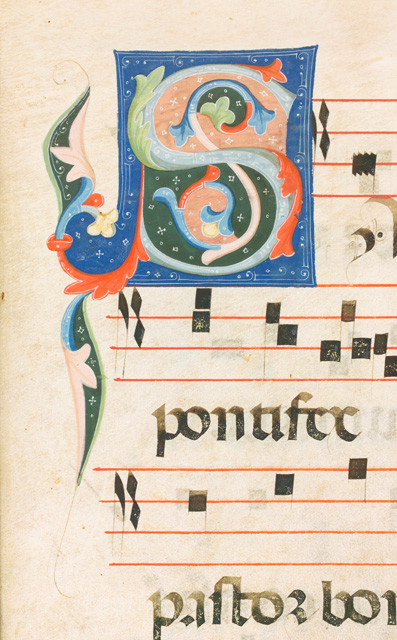 S
pontifex
pastor bo